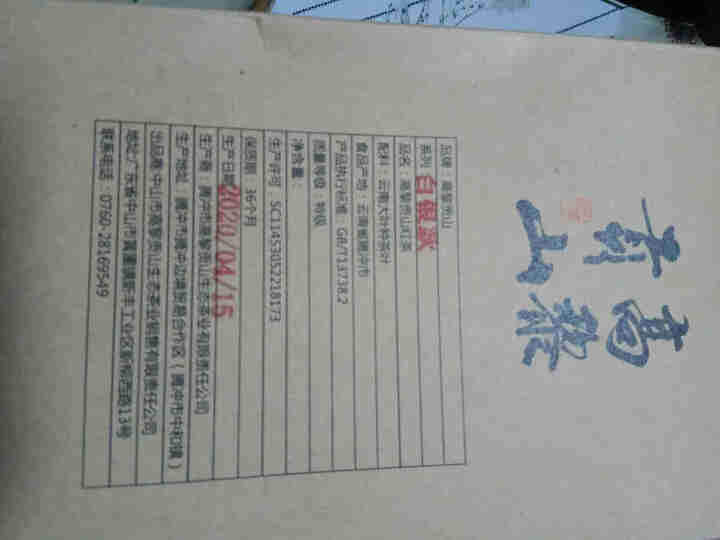 高黎
贡山
品牌：高黎贡山
系列：白银秋
品名：高黎贡山红茶
配料：云南大叶种茶叶
食品产地：云南省腾冲市
产品执行标准：GB/T13738.2
质量等级：特级
净含量：
生产许可：SC11453052218173
保质期：36个月
生产日期：2020/04/15
生产商：腾冲市高黎贡山生态茶业有限责任公司
生产地址：腾冲市腾冲边境贸易合作区（腾冲市中和镇）
出品商：中山市高黎贡山生态茶业销售有限责任公司
地址：广东省中山市黄圃镇新丰工业区新柳西路13号
联系电话：0760-28169549